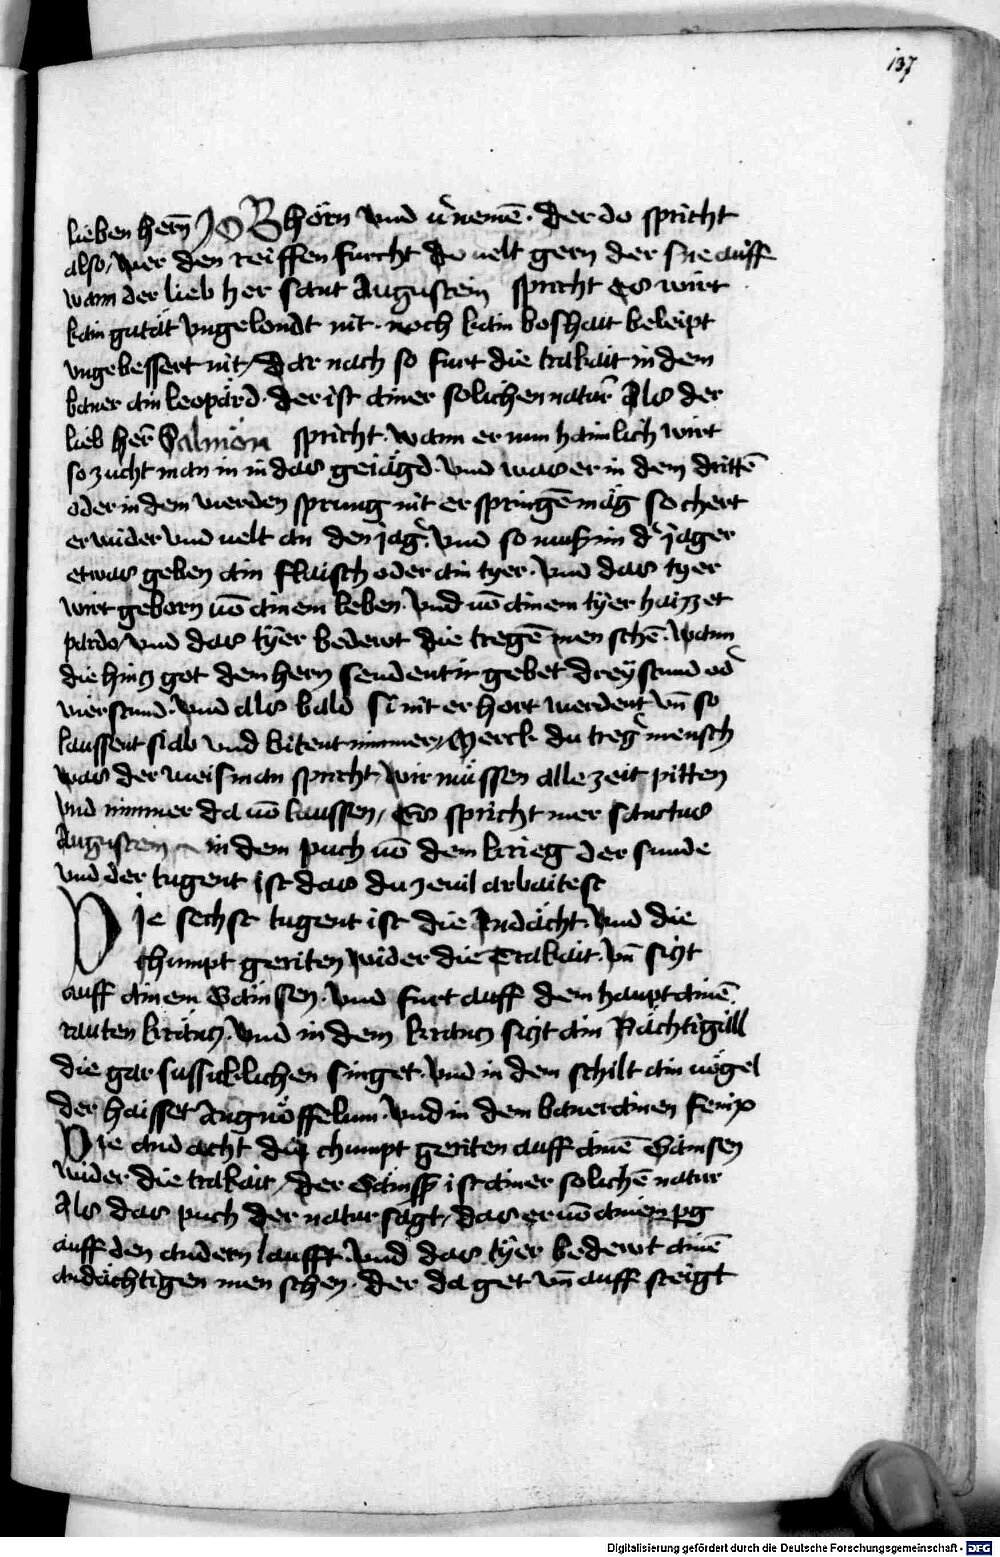 137
lieben hern̄ JOB hörn vnd v̓nemē. der do spricht
also, wer den reiffen furcht do uelt gern der sne auff
wann der lieb her sant Augustein spricht Es wirt
kain gutät vngelondt nit. noch kain boshait beleipt
vngebessert nit, dar nach so furt die trakait in dem
baner ain leopärd. der ist ainer solichen natur̄ Als der
lieb her̄ Salmön spricht. wann er nun haimlich wirt
so zucht man in in das geiägd. vnd was er in dem drittē
oder in dem uierden sprung nit er springē mäg so chert
er wider vnd uelt an den jag̓. vnd so muß im d̓ jäger
etwas geben ain flaisch oder ain tyer. vnd das tyer
wirt geborn uō ainem leben. vnd uō ainem tÿer haizzet
pardo, vnd das tÿer bedewt die tregē menschē. wann
die hincz got dem hern sendent ir gebet dreÿstund od̓
uierstund. vnd als bald si nit erhort werdent vn̄ so
laussent si ab vnd bitent nimmer, Merck du treg̓ mensch
was der weisman spricht, wir müssen alle zeit pitten
vnd nimmer da uō laussen, Es spricht mer sanctus
Augustein in dem puch uō dem krieg der sunde
vnd der tugent ist das du zeuil arbaitest
Die sechst tugent ist die Andächt. vnd die
chumpt geriten wider die Trakait. vn̄ siczt
auff ainem Gämsen. vnd furt auff dem haupt ainē
rauten kräncz. vnd in dem krancz siczt ain Nächtigäll
die gar sussicklichen singet. vnd in dem schilt ain uögel
der haisset Anguö ffelum. vnd in dem baner ainen fenix
Die and acht die chumpt geriten auff ainē Gämsen
wider die trakait, der Gämss ist ainer solichē natur
Als das puch der natur sägt, das er uō ainem pg
auff den andern laufft. vnd das tÿer bedewt ainē
andächtigen menschen. der da get vn̄ auff steigt
Digitalisierung gefördert durch die Deutsche Forschungsgemeinschaft - DFG